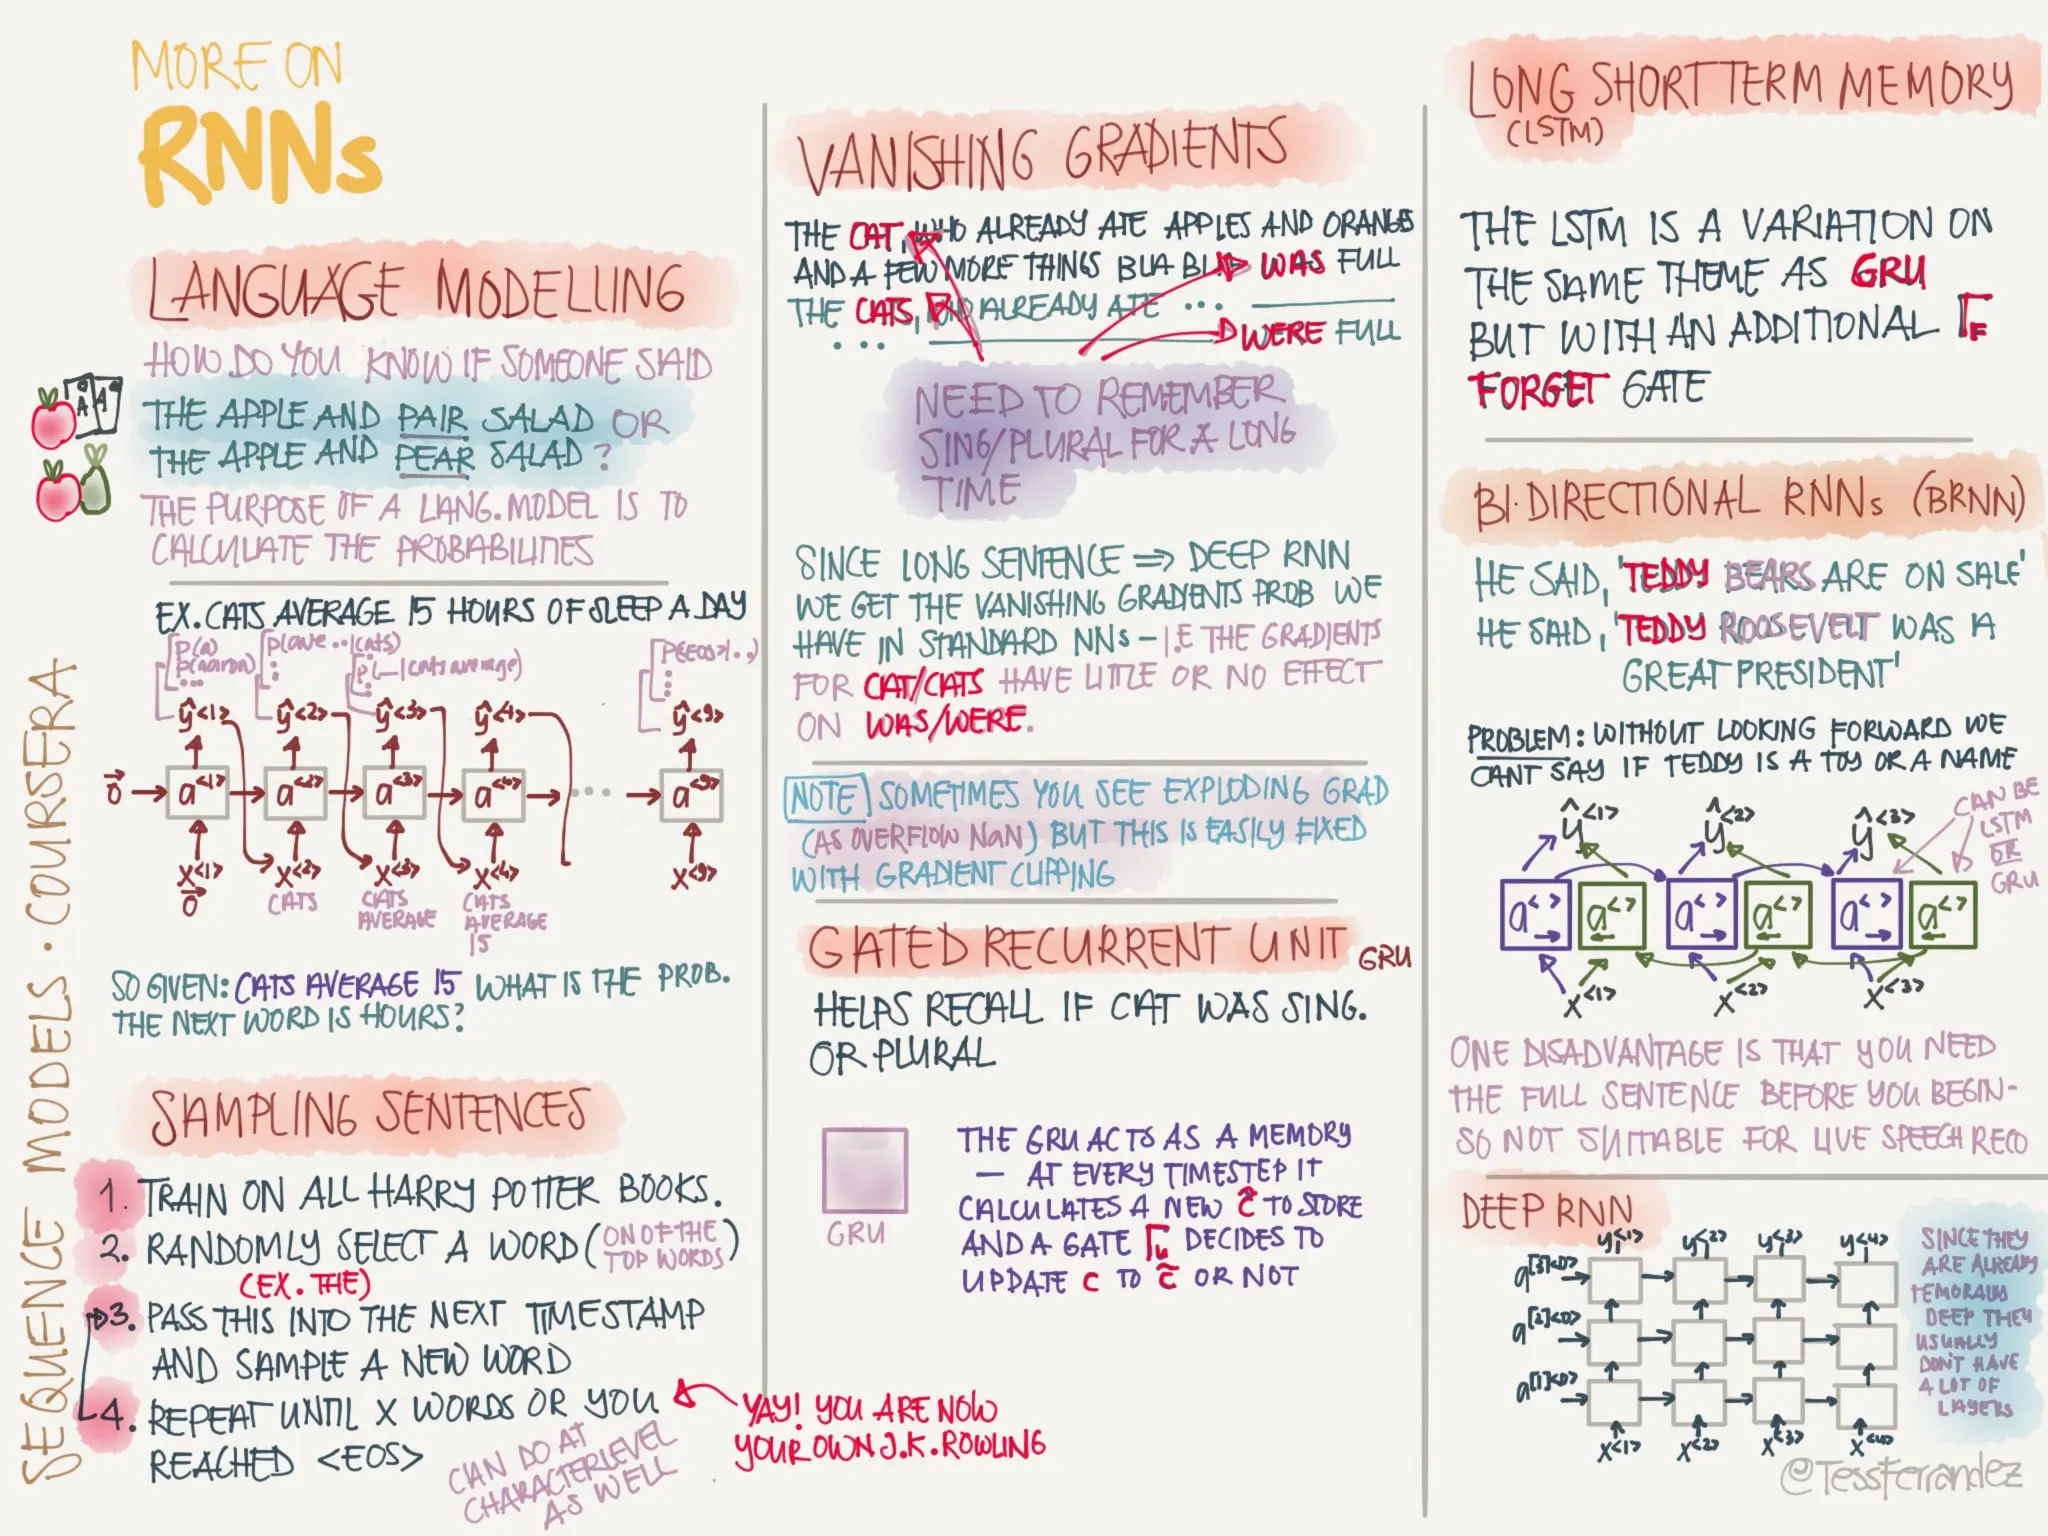 MORE ON
RNNs
LANGUAGE MODELLING
HOW DO YOU KNOW IF SOMEONE SAID
THE APPLE AND PAIR SALAD OR
THE APPLE AND PEAR SALAD?
THE PURPOSE OF A LANG.MODEL IS TO
CALCULATE THE PROBABILITIES
A A
EX. CATS AVERAGE 15 HOURS OF SLEEP A DAY
P(a)
P(aaron)
...
P(ave..|cats)
P(—|cats average)
P(<EOS>|..)
ŷ<1> ŷ<2> ŷ<3> ŷ<4> ŷ<9>
0⃗ a<1> a<2> a<3> a<4> ... a<9>
x<1> x<2> x<3> x<4> x<9>
0⃗ CATS CATS AVERAGE CATS AVERAGE 15
SO GIVEN: CATS AVERAGE 15 WHAT IS THE PROB.
THE NEXT WORD IS HOURS?
SAMPLING SENTENCES
1. TRAIN ON ALL HARRY POTTER BOOKS.
2. RANDOMLY SELECT A WORD (ON OF THE TOP WORDS)
(EX. THE)
3. PASS THIS INTO THE NEXT TIMESTAMP
AND SAMPLE A NEW WORD
4. REPEAT UNTIL X WORDS OR YOU
REACHED <EOS>
CAN DO AT
CHARACTERLEVEL
AS WELL
YAY! YOU ARE NOW
YOUR OWN J.K.ROWLING
SEQUENCE MODELS · COURSERA
VANISHING GRADIENTS
THE CAT, WHO ALREADY ATE APPLES AND ORANGES
AND A FEW MORE THINGS BLA BLA WAS FULL
THE CATS, WHO ALREADY ATE ...
... WERE FULL
NEED TO REMEMBER
SING/PLURAL FOR A LONG
TIME
SINCE LONG SENTENCE ⇒ DEEP RNN
WE GET THE VANISHING GRADIENTS PROB WE
HAVE IN STANDARD NNs – I.E THE GRADIENTS
FOR CAT/CATS HAVE LITTLE OR NO EFFECT
ON WAS/WERE.
NOTE SOMETIMES YOU SEE EXPLODING GRAD
(AS OVERFLOW NaN) BUT THIS IS EASILY FIXED
WITH GRADIENT CLIPPING
GATED RECURRENT UNIT GRU
HELPS RECALL IF CAT WAS SING.
OR PLURAL
GRU
THE GRU ACTS AS A MEMORY
— AT EVERY TIMESTEP IT
CALCULATES A NEW c̃ TO STORE
AND A GATE Γu DECIDES TO
UPDATE c TO c̃ OR NOT
LONG SHORT TERM MEMORY
(LSTM)
THE LSTM IS A VARIATION ON
THE SAME THEME AS GRU
BUT WITH AN ADDITIONAL ΓF
FORGET GATE
BI·DIRECTIONAL RNNs (BRNN)
HE SAID, 'TEDDY BEARS ARE ON SALE'
HE SAID, 'TEDDY ROOSEVELT WAS A
GREAT PRESIDENT'
PROBLEM: WITHOUT LOOKING FORWARD WE
CANT SAY IF TEDDY IS A TOY OR A NAME
ŷ<1> ŷ<2> ŷ<3>
CAN BE
LSTM
OR
GRU
a< > a< > a< > a< > a< > a< >
x<1> x<2> x<3>
ONE DISADVANTAGE IS THAT YOU NEED
THE FULL SENTENCE BEFORE YOU BEGIN-
SO NOT SUITABLE FOR LIVE SPEECH RECO
DEEP RNN
y<1> y<2> y<3> y<4>
a[3]<0>
a[2]<0>
a[1]<0>
x<1> x<2> x<3> x<4>
SINCE THEY
ARE ALREADY
TEMORALLY
DEEP THEY
USUALLY
DON'T HAVE
A LOT OF
LAYERS
@TessFerrandez